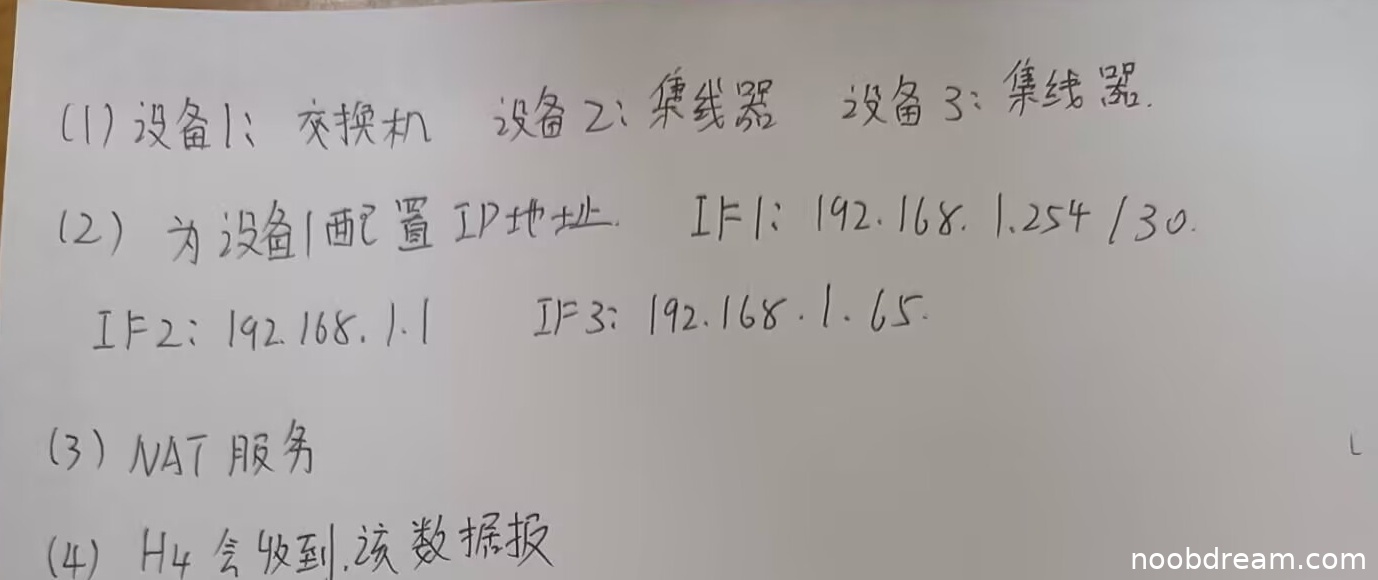 (1) 设备1: 交换机 设备2: 集线器 设备3: 集线器.
(2) 为设备1配置IP地址. IF1: 192.168.1.254/30.
IF2: 192.168.1.1 IF3: 192.168.1.65.
(3) NAT服务
(4) H4会收到.该数据报
noobdream.com